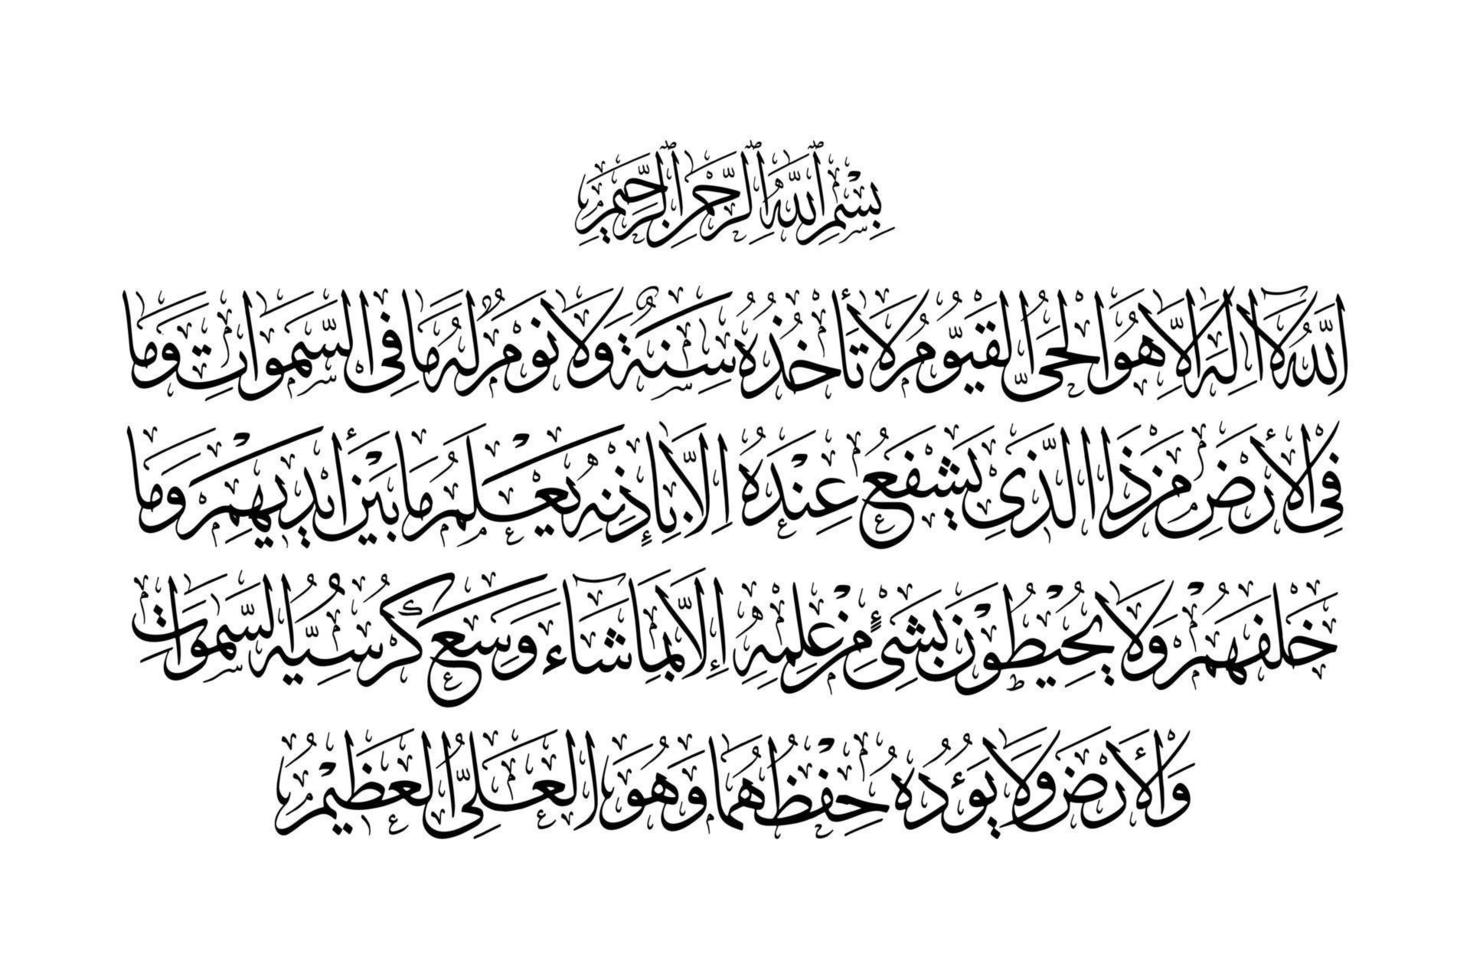 بِسْمِ ٱللَّهِ ٱلرَّحْمَنِ ٱلرَّحِيمِ
اللَّهُ لَا إِلَهَ إِلَّا هُوَ الْحَيُّ الْقَيُّومُ لَا تَأْخُذُهُ سِنَةٌ وَلَا نَوْمٌ لَهُ مَا فِي السَّمَوَاتِ وَمَا
فِي الْأَرْضِ مَنْ ذَا الَّذِي يَشْفَعُ عِنْدَهُ إِلَّا بِإِذْنِهِ يَعْلَمُ مَا بَيْنَ أَيْدِيهِمْ وَمَا
خَلْفَهُمْ وَلَا يُحِيطُونَ بِشَيْءٍ مِنْ عِلْمِهِ إِلَّا بِمَا شَاءَ وَسِعَ كُرْسِيُّهُ السَّمَوَاتِ
وَالْأَرْضَ وَلَا يَؤُدُهُ حِفْظُهُمَا وَهُوَ الْعَلِيُّ الْعَظِيمُ